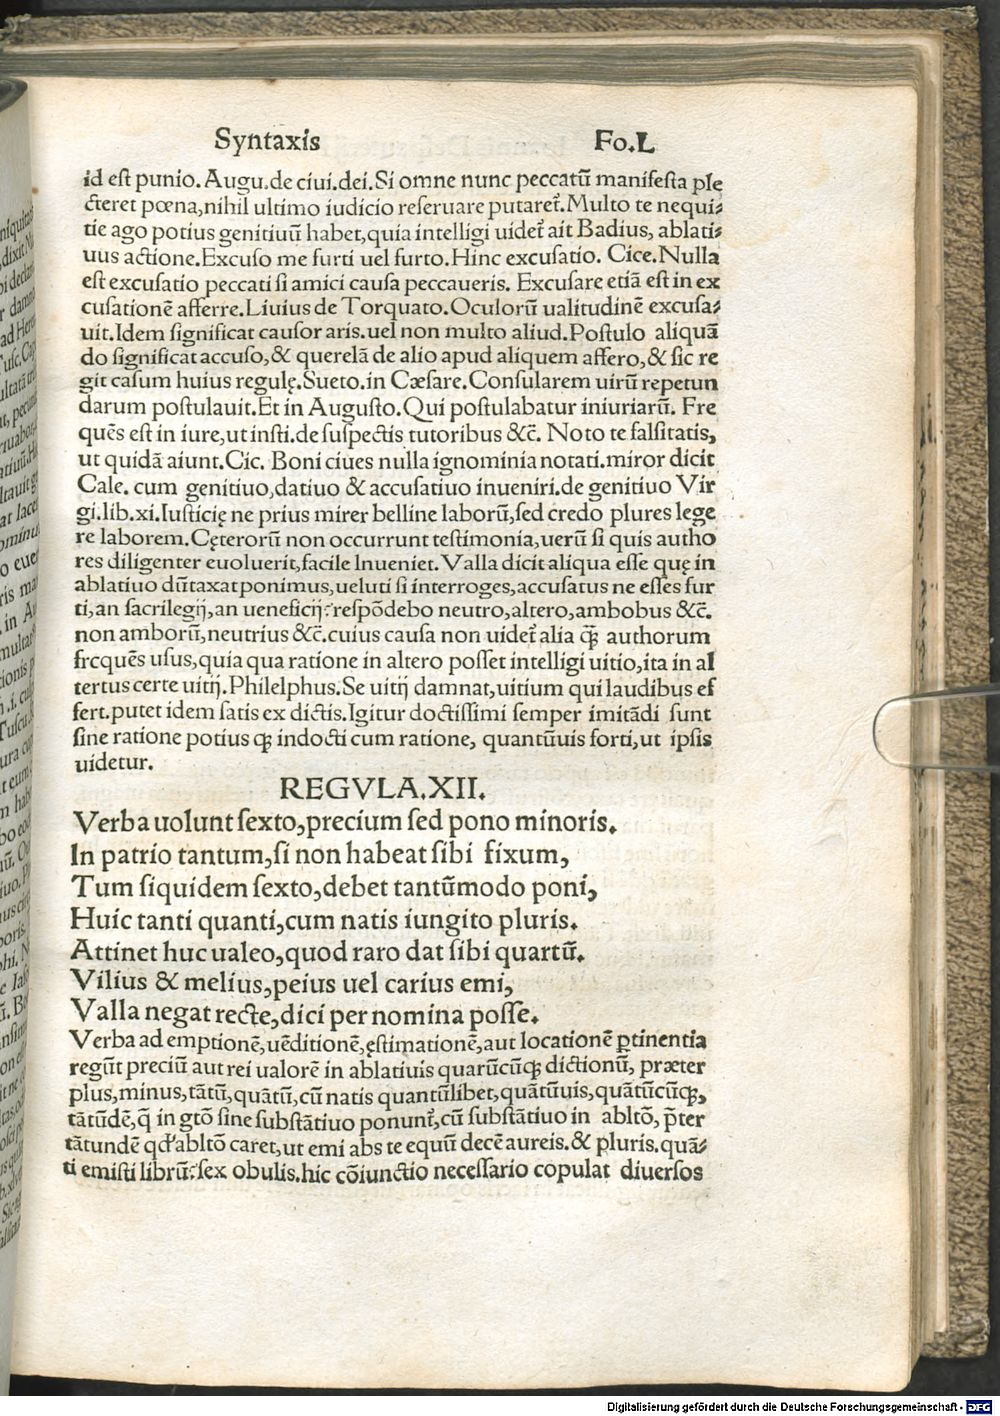 Syntaxis Fo.L
id est punio. Augu. de ciui. dei. Si omne nunc peccatū manifesta ple
cteret pœna, nihil ultimo iudicio reseruare putaret᷑. Multo te nequi⸗
tie ago potius genitiuū habet, quia intelligi uidet᷑ ait Badius, ablati⸗
uus actione. Excuso me furti uel furto. Hinc excusatio. Cice. Nulla
est excusatio peccati si amici causa peccaueris. Excusare etiā est in ex
cusationē afferre. Liuius de Torquato. Oculorū ualitudinē excusa⸗
uit. Idem significat causor aris. uel non multo aliud. Postulo aliquā
do significat accuso, & querelā de alio apud aliquem affero, & sic re
git casum huius regulę. Sueto. in Cæsare. Consularem uirū repetun
darum postulauit. Et in Augusto. Qui postulabatur iniuriarū. Fre
quēs est in iure, ut insti. de suspectis tutoribus &c̄. Noto te falsitatis,
ut quidā aiunt. Cic. Boni ciues nulla ignominia notati. miror dicit
Cale. cum genitiuo, datiuo & accusatiuo inueniri. de genitiuo Vir
gi. lib. xi. Iusticię ne prius mirer belline laborū, sed credo plures lege
re laborem. Cęterorū non occurrunt testimonia, uerū si quis autho
res diligenter euoluerit, facile Inueniet. Valla dicit aliqua esse quę in
ablatiuo dūtaxat ponimus, ueluti si interroges, accusatus ne esses fur
ti, an sacrilegij, an ueneficij: respōdebo neutro, altero, ambobus &c̄.
non amborū, neutrius &c̄. cuius causa non uidet᷑ alia q̄ꝫ authorum
frequēs usus, quia qua ratione in altero posset intelligi uitio, ita in al
tertus certe uitij. Philelphus. Se uitij damnat, uitium qui laudibus ef
fert. putet idem satis ex dictis. Igitur doctissimi semper imitādi sunt
sine ratione potius q̄ꝫ indocti cum ratione, quantūuis forti, ut ipsis
uidetur.
REGVLA. XII.
Verba uolunt sexto, precium sed pono minoris.
In patrio tantum, si non habeat sibi fixum,
Tum siquidem sexto, debet tantūmodo poni,
Huic tanti quanti, cum natis iungito pluris.
Attinet huc ualeo, quod raro dat sibi quartū.
Vilius & melius, peius uel carius emi,
Valla negat recte, dici per nomina posse.
Verba ad emptionē, uēditionē, ęstimationē, aut locationē ꝑtinentia
regūt preciū aut rei ualorē in ablatiuis quarūcūqꝫ dictionū, præter
plus, minus, tātū, quātū, cū natis quantūlibet, quātūuis, quātūcūqꝫ,
tātūdē, q̄ in gtō sine substātiuo ponunt᷑, cū substātiuo in abltō, p̄ter
tātundē qd̓ abltō caret, ut emi abs te equū decē aureis. & pluris. quā⸗
ti emisti librū: sex obulis. hic cōiunctio necessario copulat diuersos
Digitalisierung gefördert durch die Deutsche Forschungsgemeinschaft - DFG